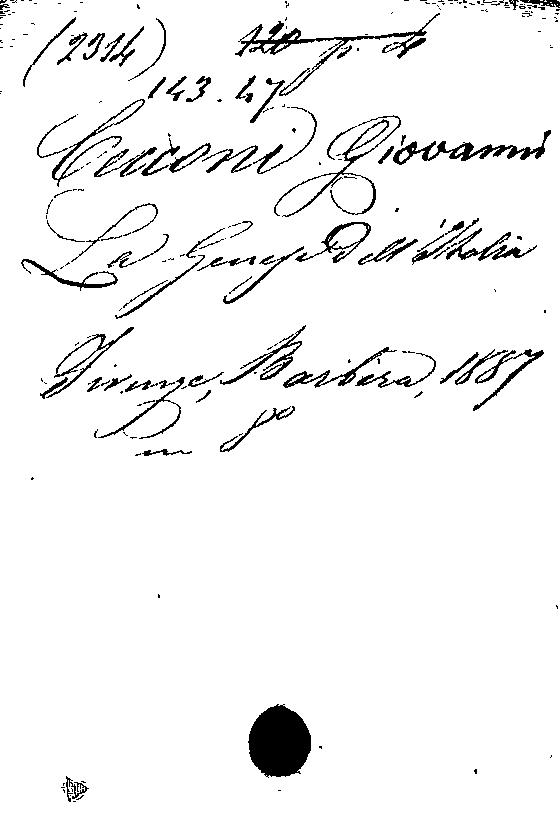 (2314) 120 p. 4
143.47
Cecconi Giovanni
La Genesi dell'Italia
Firenze, Barbèra, 1887
in 8º